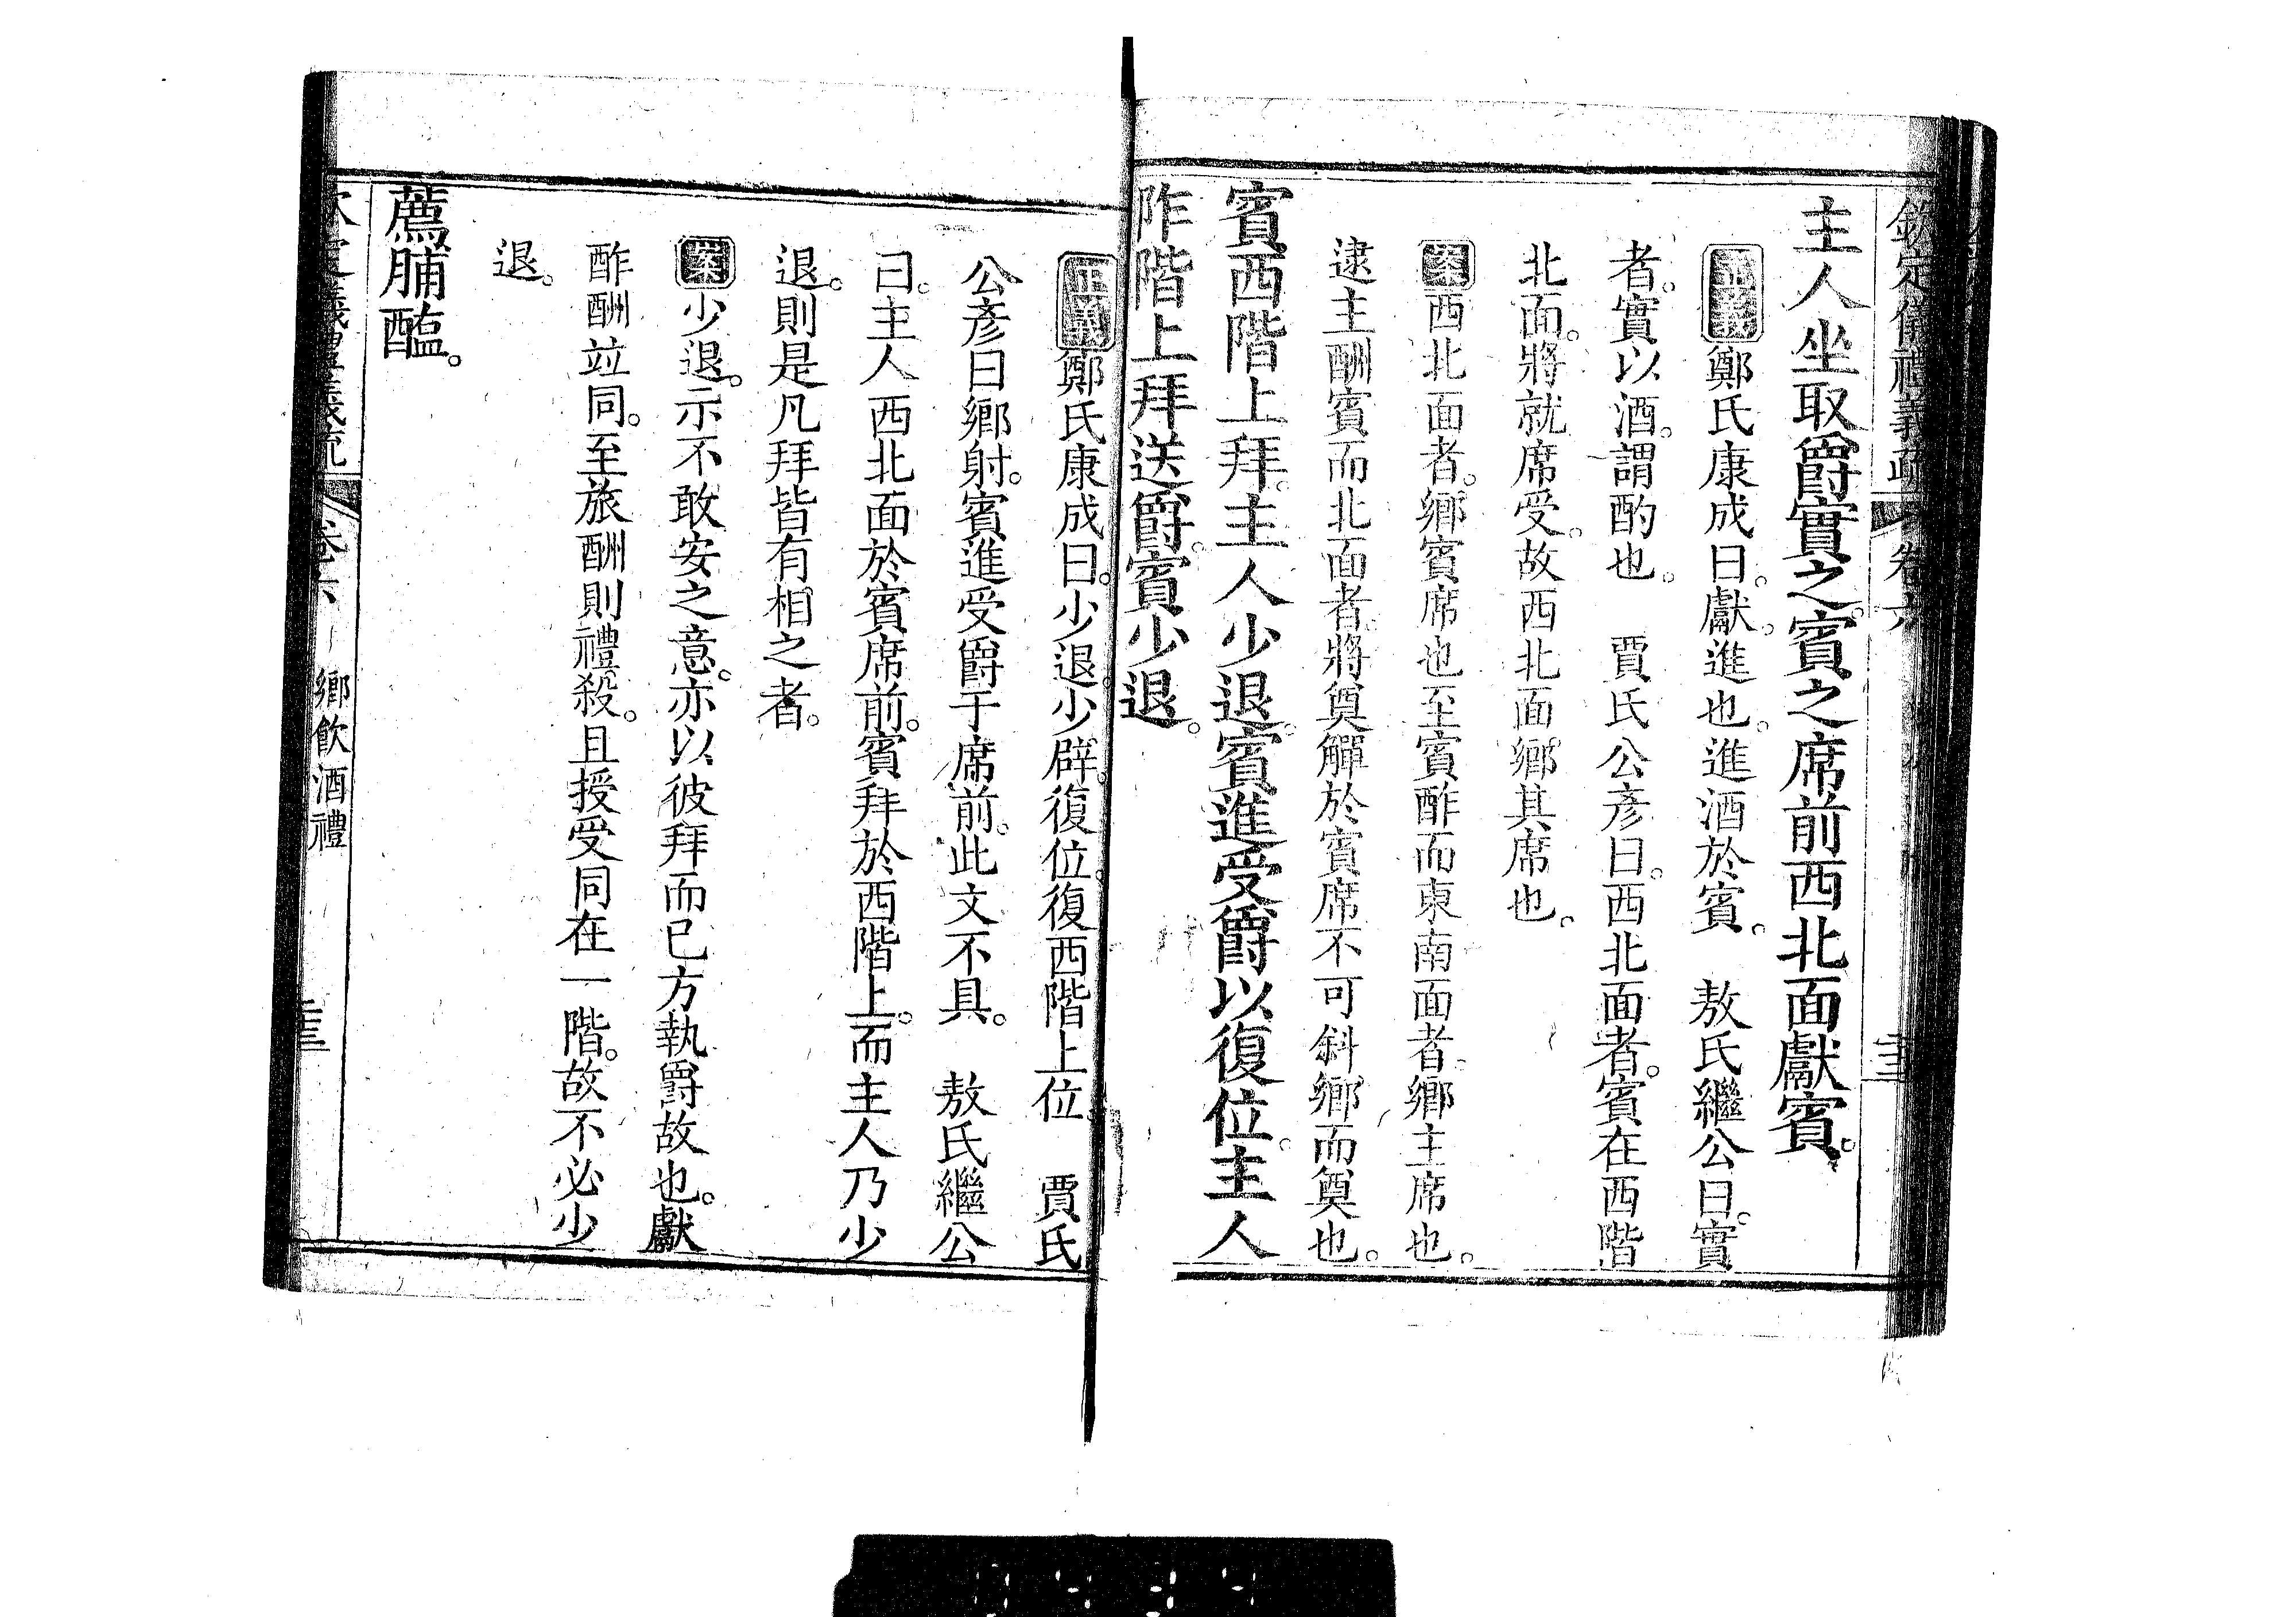 欽定儀禮義疏 卷六
主人坐取爵實之。賓之席前西北面獻賓。
正義鄭氏康成曰。獻。進也。進酒於賓。 敖氏繼公曰。實
者。實以酒。謂酌也。 賈氏公彥曰。西北面者。賓在西階
北面。將就席受。故西北面鄉其席也。
案西北面者。鄉賓席也至賓酢而東南面者。鄉主席也。
逮主酬賓而北面者。將奠觶於賓席不可斜鄉而奠也。
賓西階上拜。主人少退。賓進受爵以復位。主人
阼階上拜送爵。賓少退。
正義鄭氏康成曰。少退。少辟。復位。復西階上位。 賈氏
公彥曰鄉射。賓進受爵于席前。此文不具。 敖氏繼公
曰。主人西北面於賓席前。賓拜於西階上。而主人乃少
退。則是凡拜皆有相之者。
案少退。示不敢安之意。亦以彼拜而已方執爵故也。獻
酢酬竝同。至旅酬則禮殺。且授受同在一階。故不必少
退。
薦脯醢。
欽定儀禮義疏 卷六 鄉飲酒禮